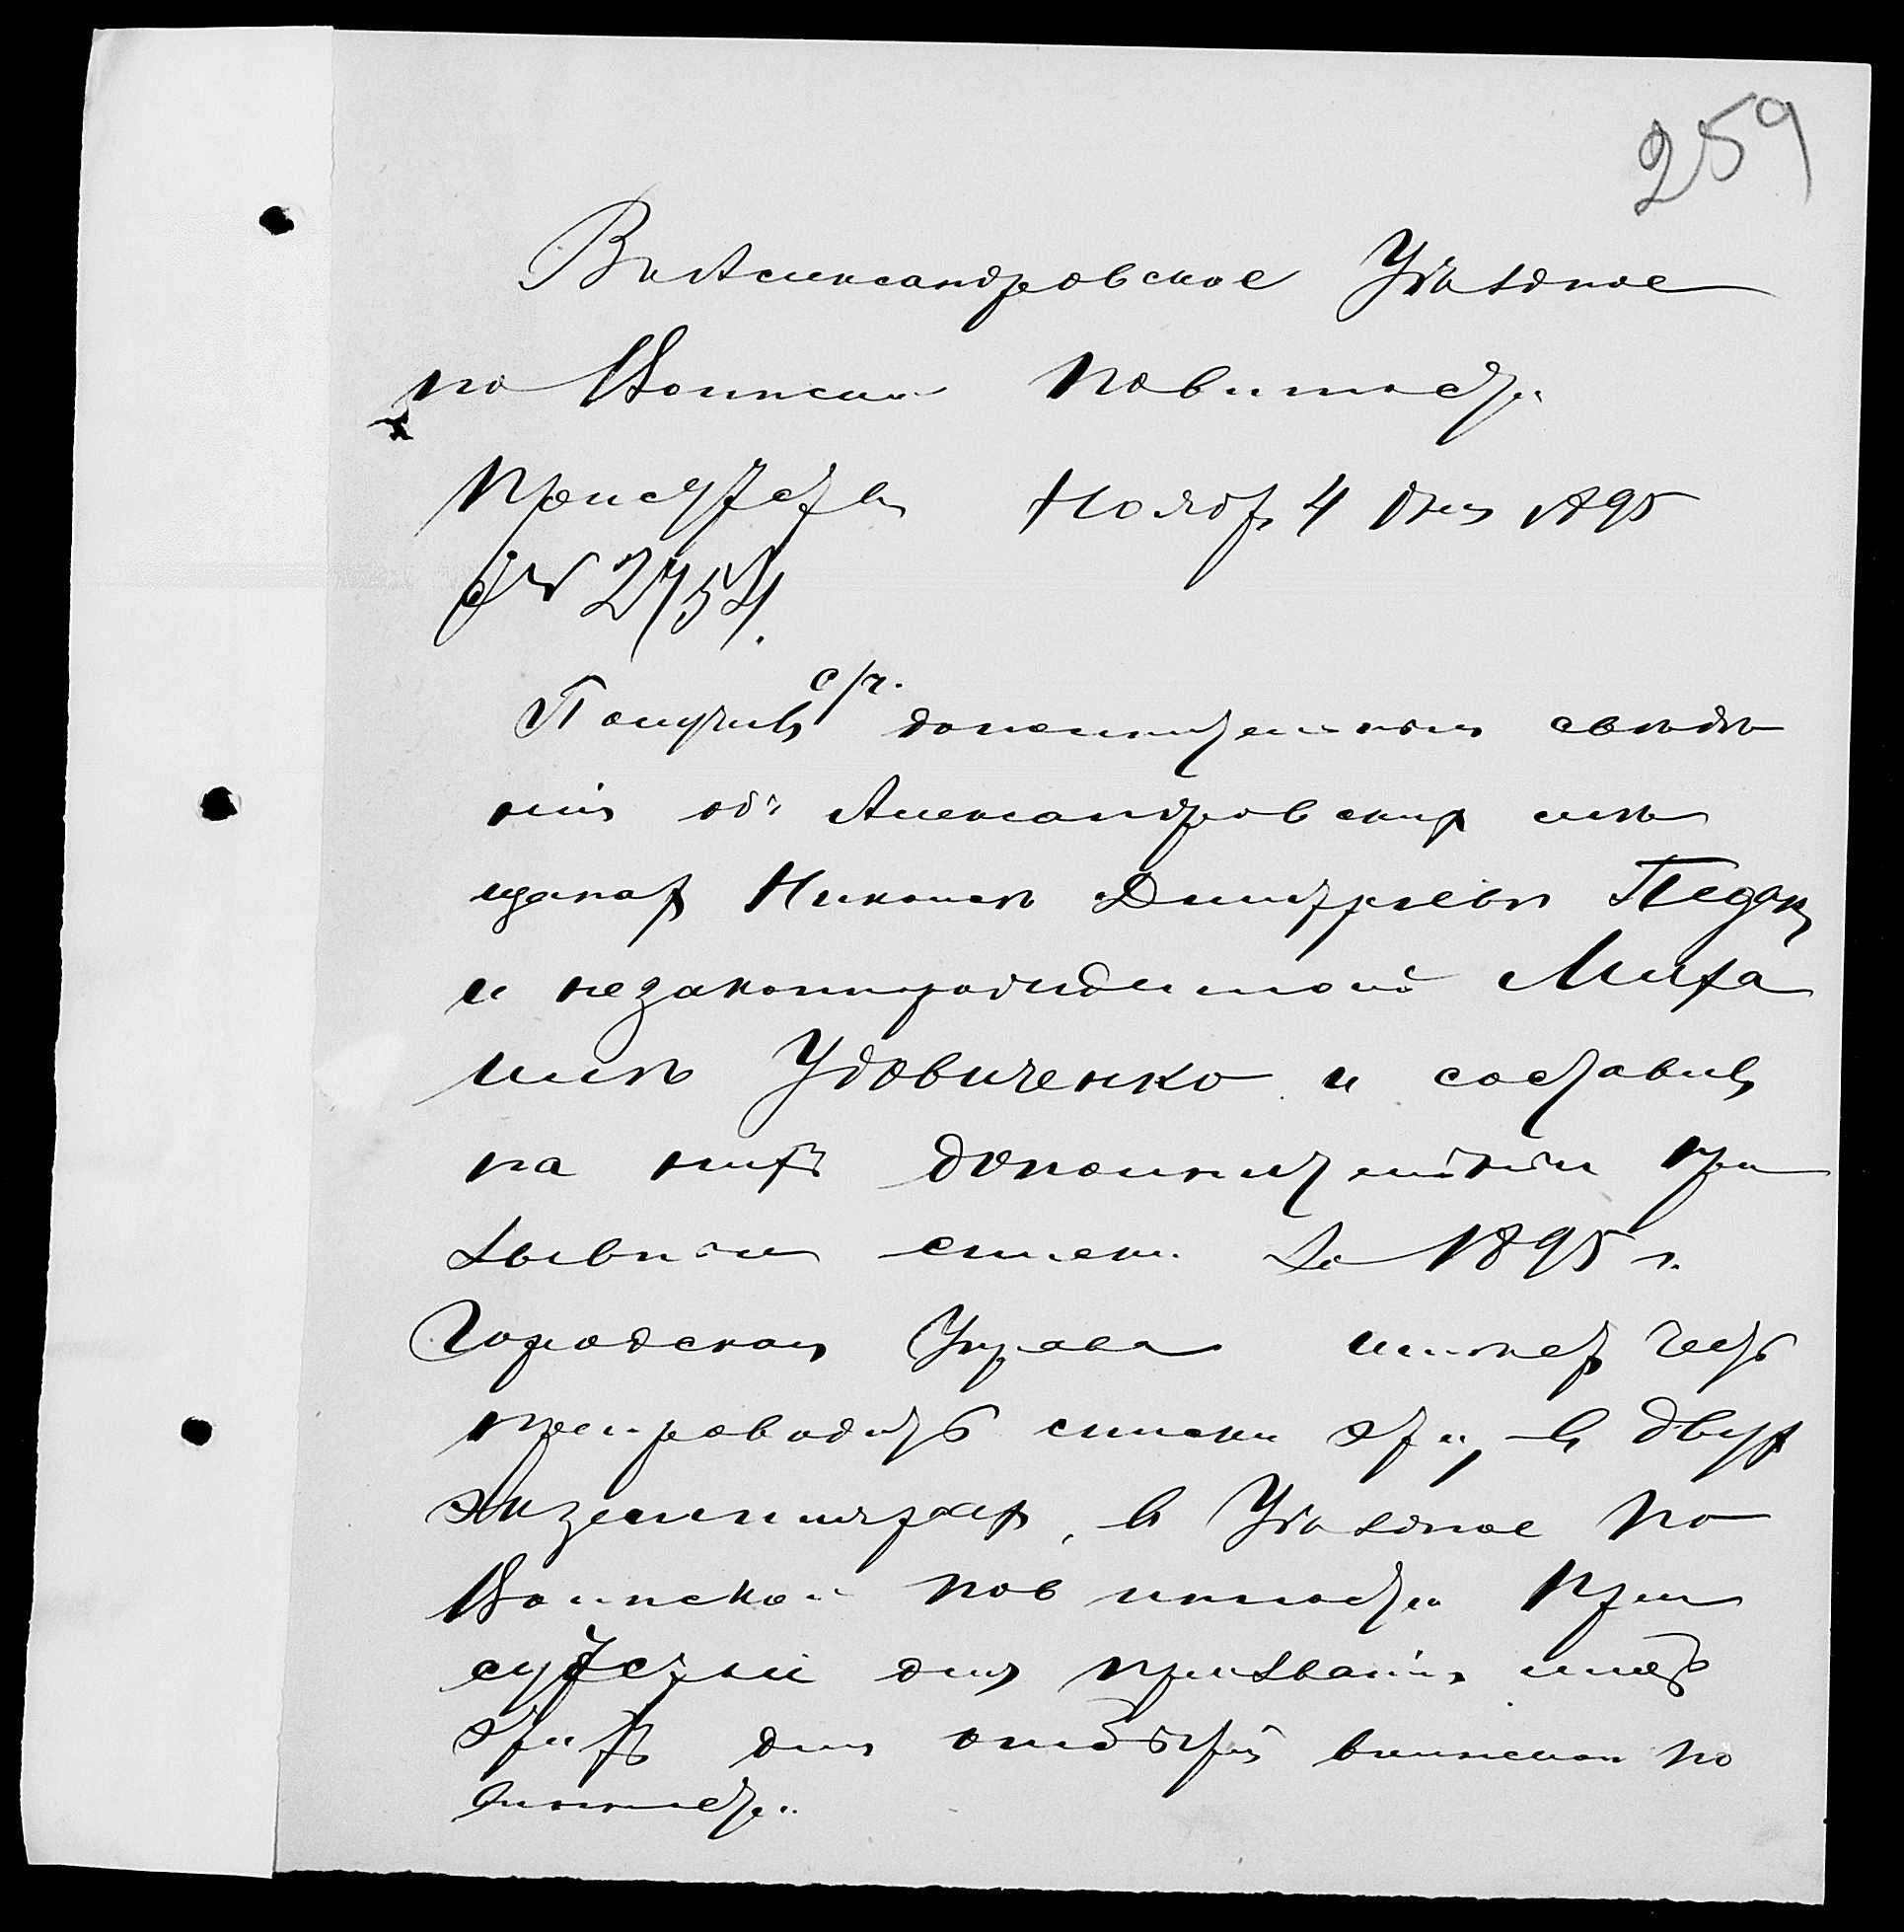 259
Въ Александровское Уѣздное
по Воинской повинности
Присутствіе Ноябр. 4 дня 1895
№ 2754.
с/г.
Получивъ дополнительныя свѣдѣ
нія объ Александровских мѣ
щанах Николаѣ Дмитріевѣ Педак
и незаконнорожденной Миха
илѣ Удовиченко и составивъ
на нихъ дополнительныи при
зывныи списки за 1895 г.
Городская Управа имѣет честь
препроводить списки эти, въ двух
экземплярах, въ Уѣздное по
Воинской повинности При
сутствіи для призванія лицъ
этихъ для отбытія воинской по
винности.